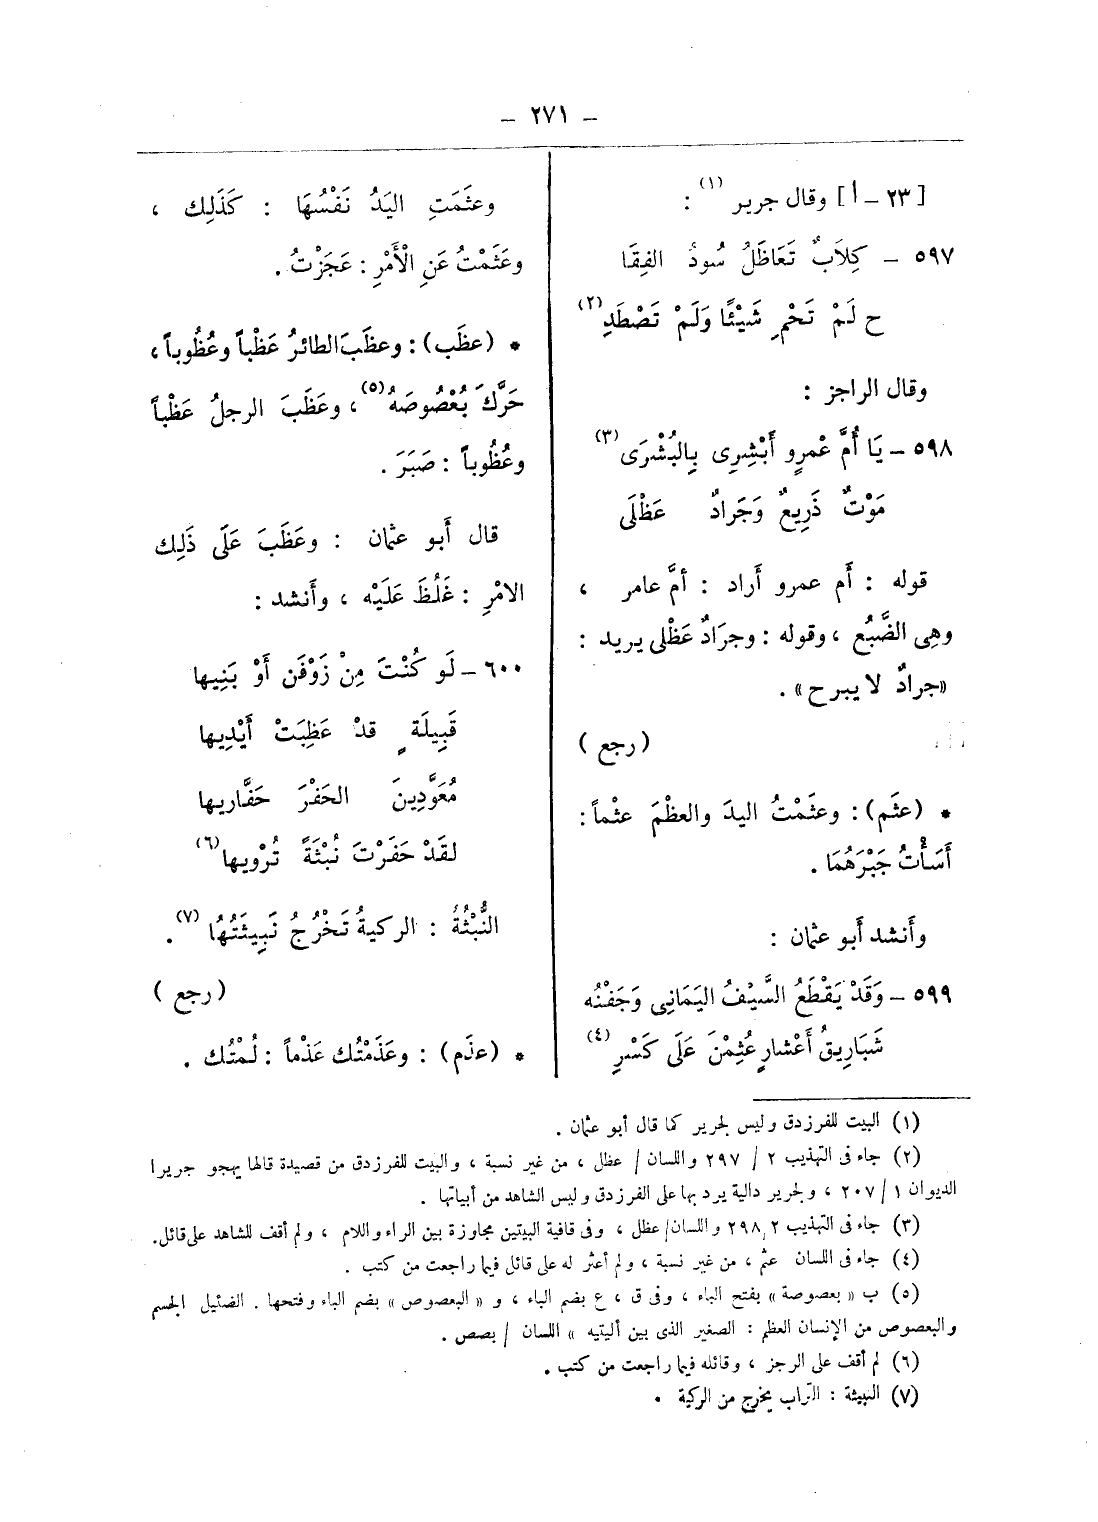 — ٢٧١ —
[ ٢٣ – أ ] وقال جرير (١) :
٥٩٧ – كِلاَبٌ تَعَاظَلُ سُودُ الفِقَا
حِ لَمْ تَحْمِ شَيْئًا وَلَمْ تَصْطَدِ (٢)
وقال الراجز :
٥٩٨ – يَا أُمَّ عَمْرٍو أَبْشِرِى بِالبُشْرَى (٣)
مَوْتٌ ذَرِيعٌ وَجَرادٌ عَظْلَى
قوله : أم عمرو أراد : أمَّ عامر ،
وهى الضَّبُع ، وقوله : وجرَادٌ عَظْلى يريد :
«جرادٌ لا يبرح» .
( رجع )
* (عثَم) : وعثَمْتُ اليدَ والعظْمَ عثْماً :
أَسَأْتُ جَبْرَهُمَا .
وأنشد أبو عثمان :
٥٩٩ – وَقَدْ يَقْطَعُ السَّيْفُ اليَمَانِى وَجَفْنُه
شَبَارِيقُ أَعْشارٍ عُثِمْنَ عَلَى كَسْرِ (٤)
وعثَمَتِ اليَدُ نَفْسُهَا : كَذَلِك ،
وعَثَمْتُ عَنِ الْأَمْرِ : عَجَزْتُ .
* (عظَب) : وعظَبَ الطائرُ عَظْباً وعُظُوباً ،
حَرَّكَ بُعْصُوصَهُ (٥) ، وعَظَبَ الرجلُ عَظْباً
وعُظُوباً : صَبَرَ .
قال أَبو عثمان : وعَظَبَ عَلَى ذَلِك
الامْرِ : غَلُظَ عَلَيْه ، وأَنشد :
٦٠٠ – لَو كُنْتَ مِنْ زَوْفَن أَوْ بَنِيها
قَبِيلَةٍ قدْ عَظِبَتْ أَيْدِيها
مُعَوَّدِينَ الحَفْرَ حَفَّاريها
لقَدْ حَفَرْتَ نُبْثَةً تُرْويها (٦)
النُّبْثَةُ : الركيةُ تَخْرُجُ نَبِيثَتُهُا (٧) .
( رجع )
* (عذَم) : وعَذَمْتُك عَذْماً : لُمْتُك .
(١) البيت للفرزدق وليس لجرير كما قال أبو عثمان .
(٢) جاء فى التهذيب ٢ / ٢٩٧ واللسان / عظل ، من غير نسبة ، والبيت للفرزدق من قصيدة قالها يهجو جريرا
الديوان ١ / ٢٠٧ ، ولجرير دالية يرد بها على الفرزدق وليس الشاهد من أبياتها .
(٣) جاء فى التهذيب ٢ ٢٩٨ واللسان/عظل ، وفى قافية البيتين مجاوزة بين الراء واللام ، ولم أقف للشاهد على قائل.
(٤) جاء فى اللسان عثم ، من غير نسبة ، ولم أعثر له على قائل فيما راجعت من كتب .
(٥) ب « بعصوصة » بفتح الباء ، وفى ق ، ع بضم الباء ، و « البعصوص » بضم الباء وفتحها . الضئيل الجسم
والبعصوص من الإنسان العظم : الصغير الذى بين أليتيه » اللسان / بصص .
(٦) لم أقف على الرجز ، وقائله فيما راجعت من كتب .
(٧) النبيثة : التراب يخرج من الركية .